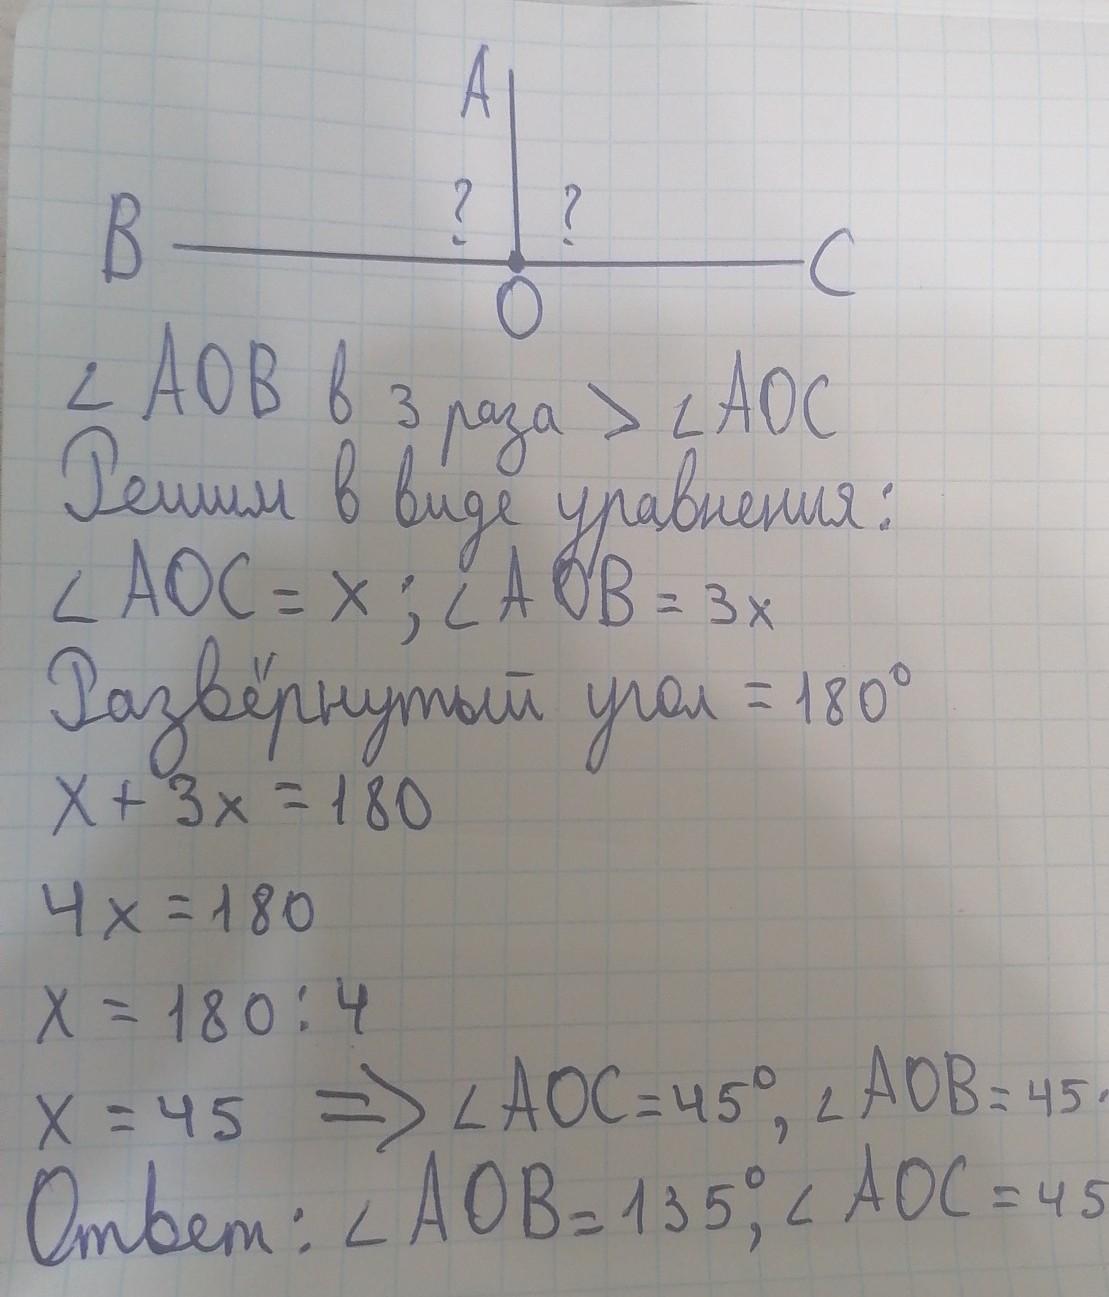 A
? ?
B C
O
∠ AOB в 3 раза > ∠ AOC
Решим в виде уравнения:
∠ AOC = x ; ∠ AOB = 3x
Развёрнутый угол = 180°
x + 3x = 180
4x = 180
x = 180 : 4
x = 45 => ∠ AOC = 45°, ∠ AOB = 45·
Ответ: ∠ AOB = 135°, ∠ AOC = 45